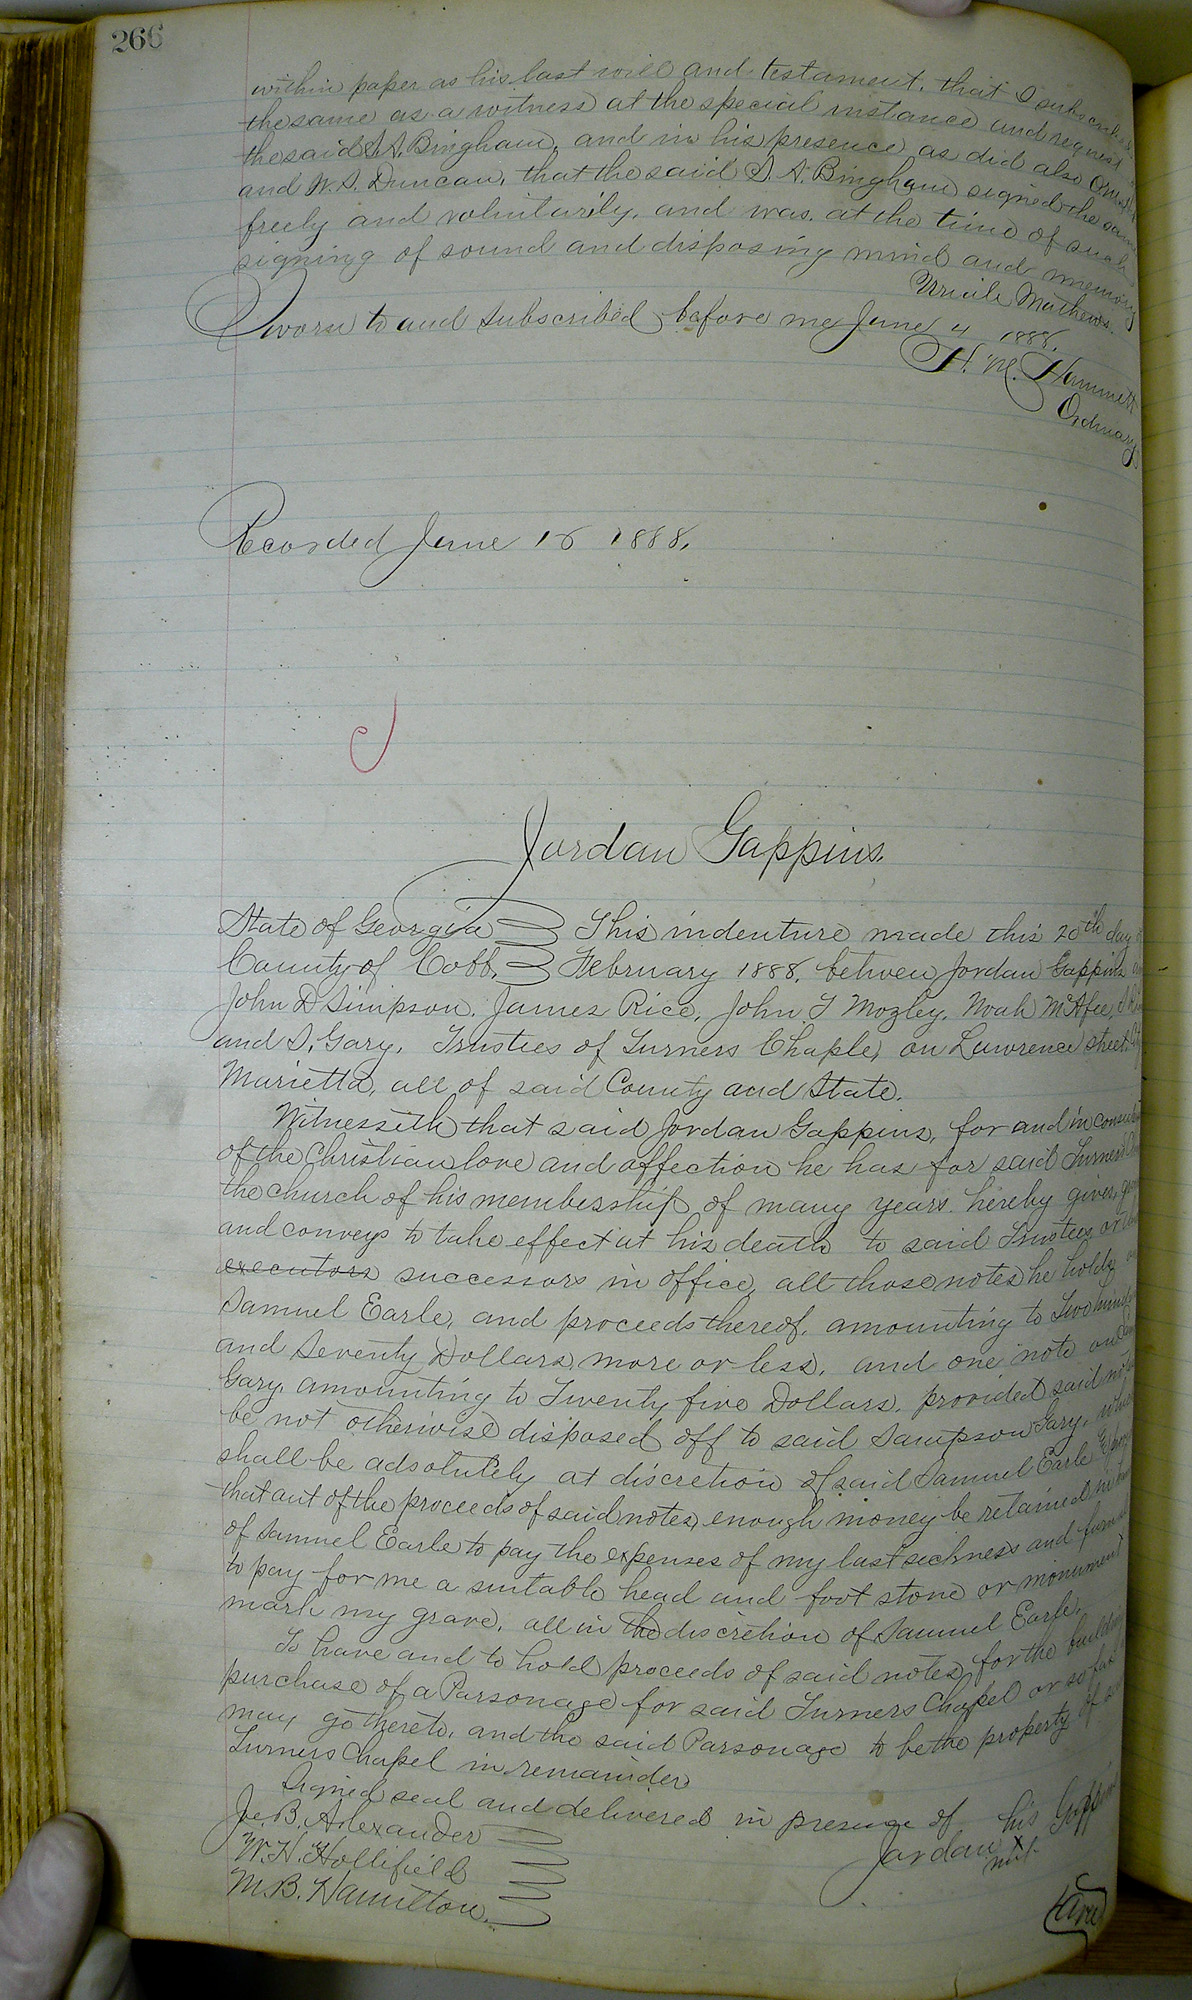 266
within paper as his last will and testament, that I subscribed
the same as a witness at the special instance and request
the said S. A. Bingham, and in his presence as did also
and W. S. Duncan, that the said S. A. Bingham signed the same
freely and voluntarily, and was, at the time of such
signing of sound and disposing mind and memory
Mathews.
Sworn to and subscribed before me June 4 1888.
H. M. Hammett
Ordinary
Recorded June 16 1888.
Jordan Gappins.
State of Georgia This indenture made this 20th day
County of Cobb. February 1888, between Jordan Gappins
John D Simpson, James Rice, John T Mozley, Noah McAfee,
and S. Gary, Trustees of Turners Chaple, on Lawrence street,
Marietta, all of said County and State.
Witnesseth that said Jordan Gappins, for and in
of the Christian love and affection he has for said Turners
the church of his membership of many years hereby gives,
and conveys to take effect at his death to said Trustees or
executors successors in office, all those notes he holds
Samuel Earle, and proceeds thereof, amounting to Two
and Seventy Dollars more or less, and one note on
Gary, amounting to Twenty five Dollars, provided said
be not otherwise disposed off to said Sampson Gary,
shall be adsolutely at discretion of said Samuel Earle
that out of the proceeds of said notes, enough money be retained in
of Samuel Earle to pay the expenses of my last sickness and
to pay for me a suitable head and foot stone or monument
mark my grave, all in the discretion of Samuel Earle.
To have and to hold proceeds of said notes, for the building
purchase of a Parsonage for said Turners Chapel or so far
may go thereto, and the said Parsonage to be the property of
Turners Chapel in remainder
Signed seal and delivered in presence of
Jordan his x Gappins
J. B. Alexander
W. H. Hollifield
M. B. Hamilton.